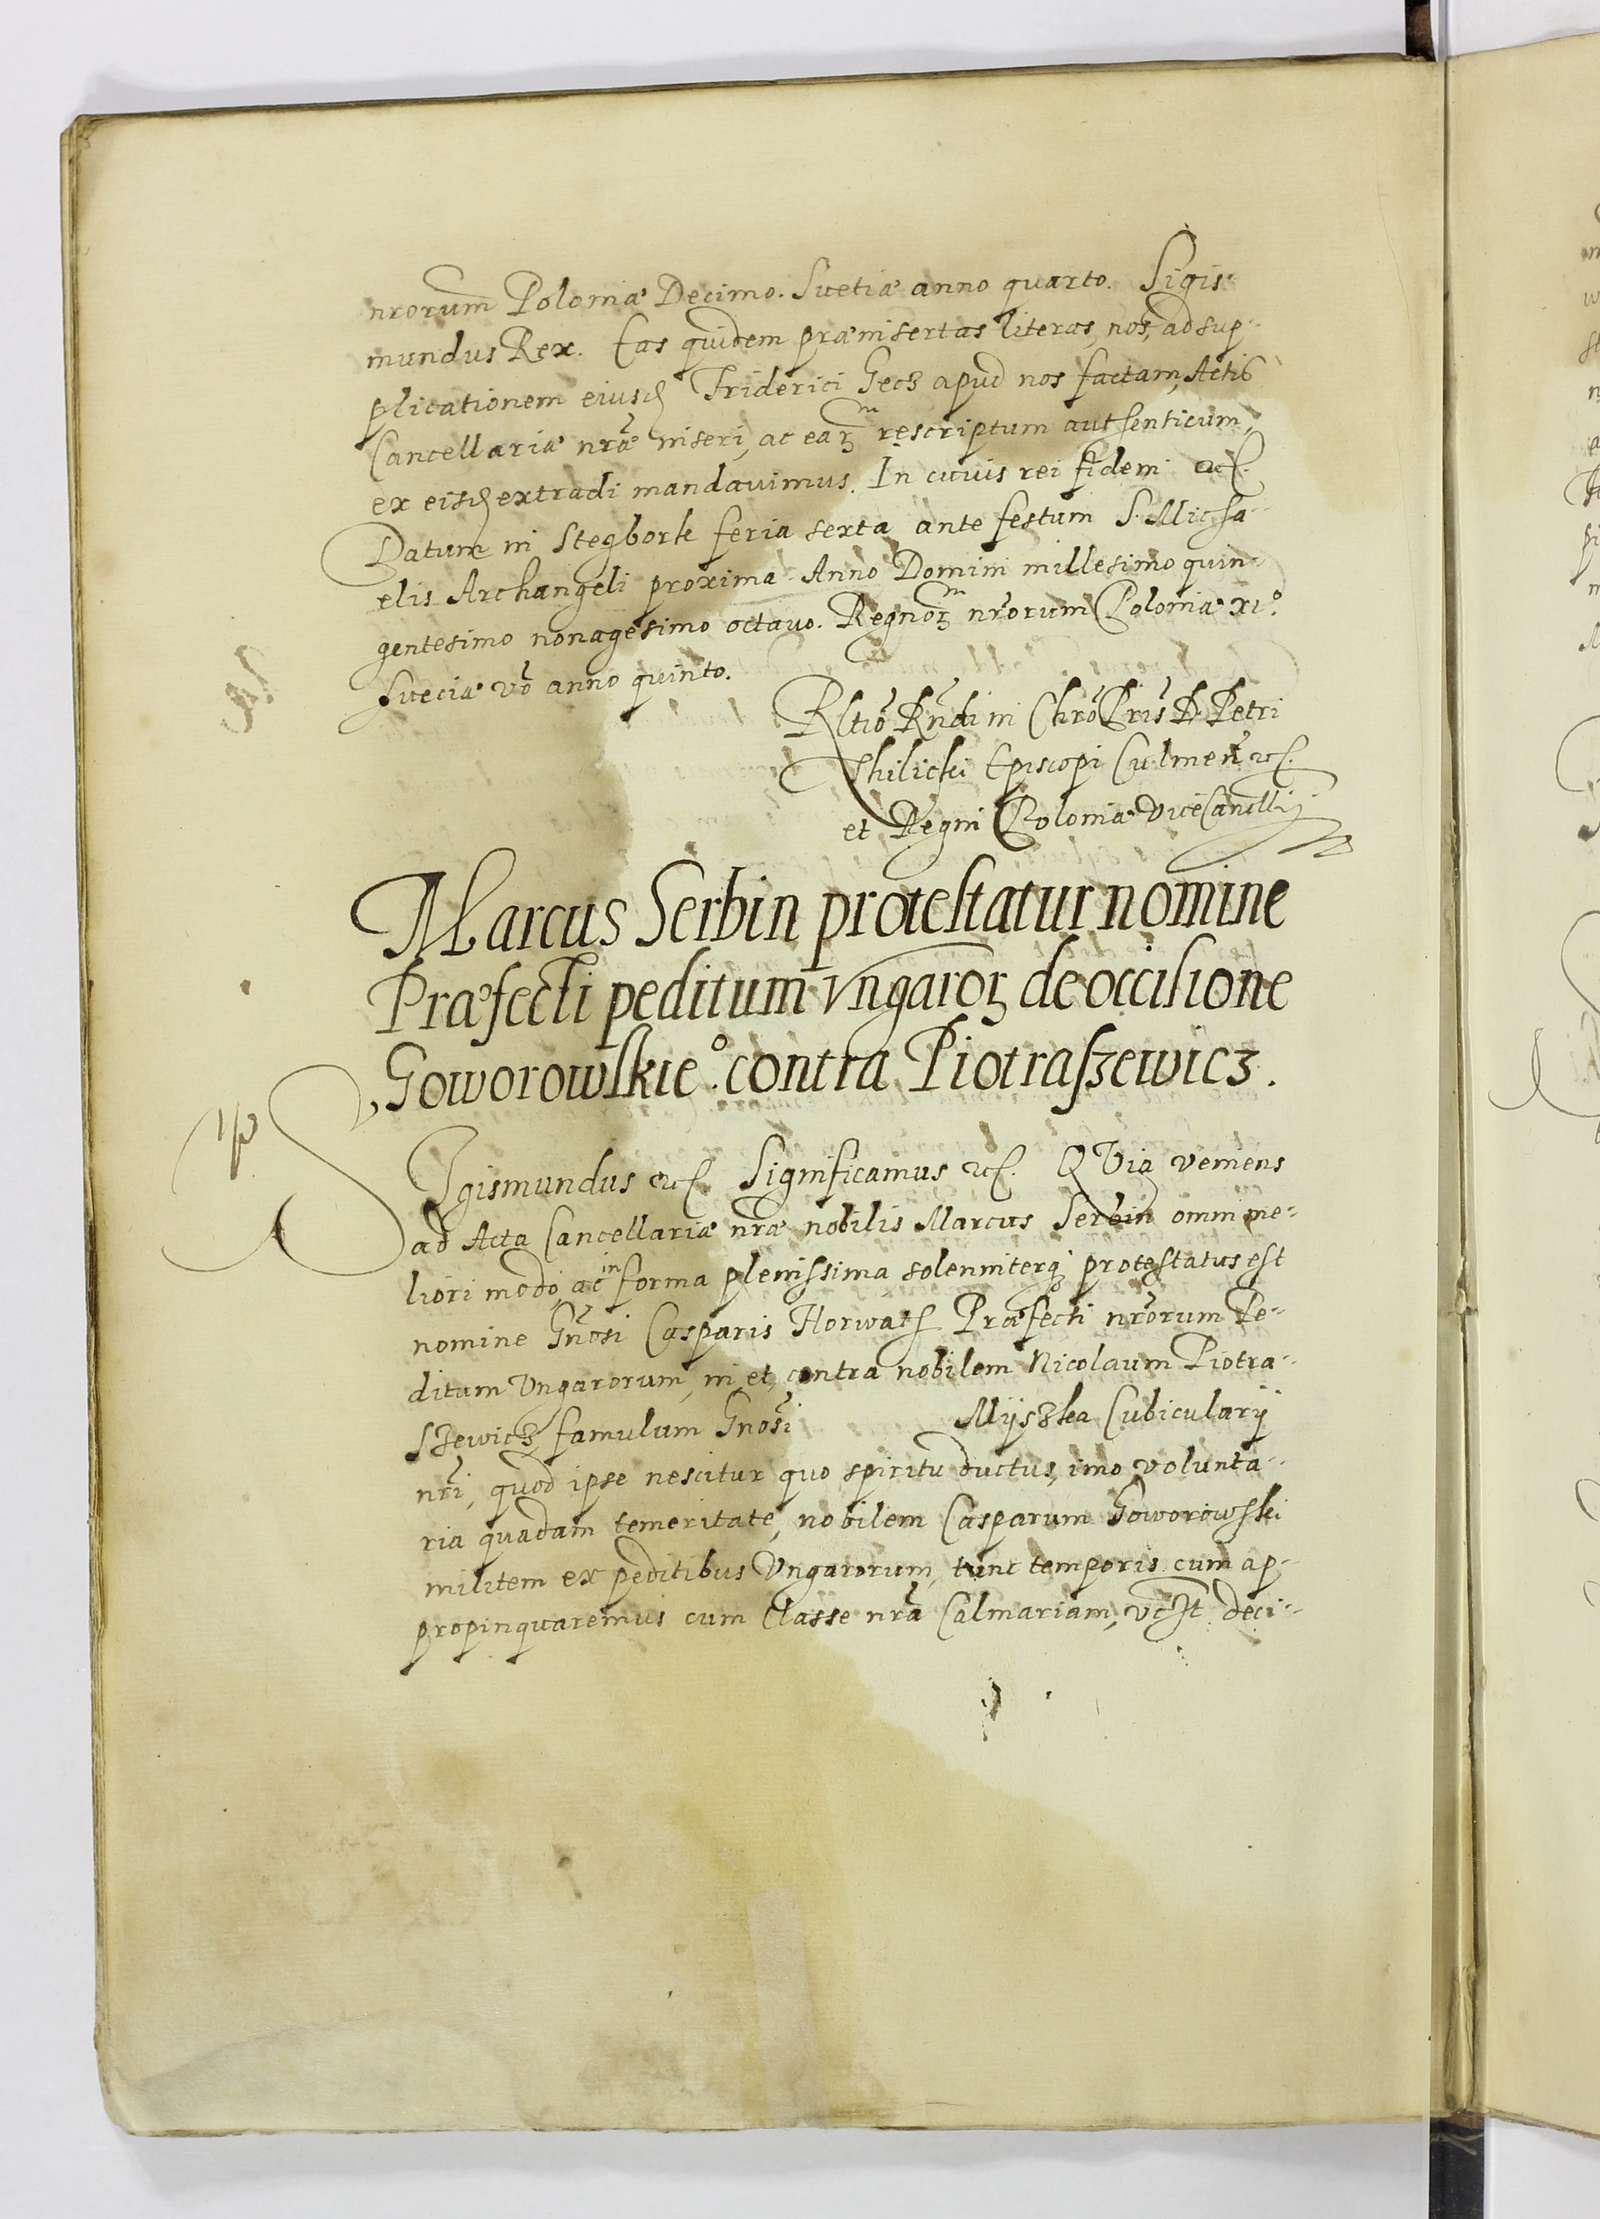 nrorum Poloniæ Decimo. Svetiæ anno quarto. Sigis-
mundus Rex. Eas quidem præinsertas literas, nos, ad sup-
plicationem eiusd Friderici Gecz apud nos factam, Actis
Cancellariæ nræ inseri, ac earz m rescriptum authenticum,
ex eisd extradi mandavimus. In cuius rei fidem etc.
Datum in Stegbork feria sexta ante festum S. Micha-
elis Archangeli proxima. Anno Domini millesimo quin-
gentesimo nonagesimo octavo. Regnorz m nrorum Poloniæ xi°
Sveciæ vo anno quinto.
Rltio Rndi in Chro Pris D. Petri
Thilicki Episcopi Culmen etc.
et Regni Poloniæ ViceCancllij
Marcus Serbin protestatur nomine
Præfecti peditum Vngarorz de occisione
Goworowskie° contra Piotraszewicz.
SIgismundus etc. Significamus etc. QVia veniens
ad Acta Cancellariæ nræ nobilis Marcus Serbin omni me-
liori modo, ac in forma plenissima solenniterq protestatus est
nomine Gnosi Casparis Horwath Præfecti nrorum Pe-
ditum Vngarorum, in et contra nobilem Nicolaum Piotra-
szewicz famulum Gnosi Myszka Cubicularij
nri, quod ipse nescitur quo spiritu ductus, imo volunta-
ria quadam temeritate, nobilem Casparum Goworowski
militem ex peditibus Vngarorum, tunc temporis cum ap-
propinquaremus cum Classe nra Calmariam, vctz deci-